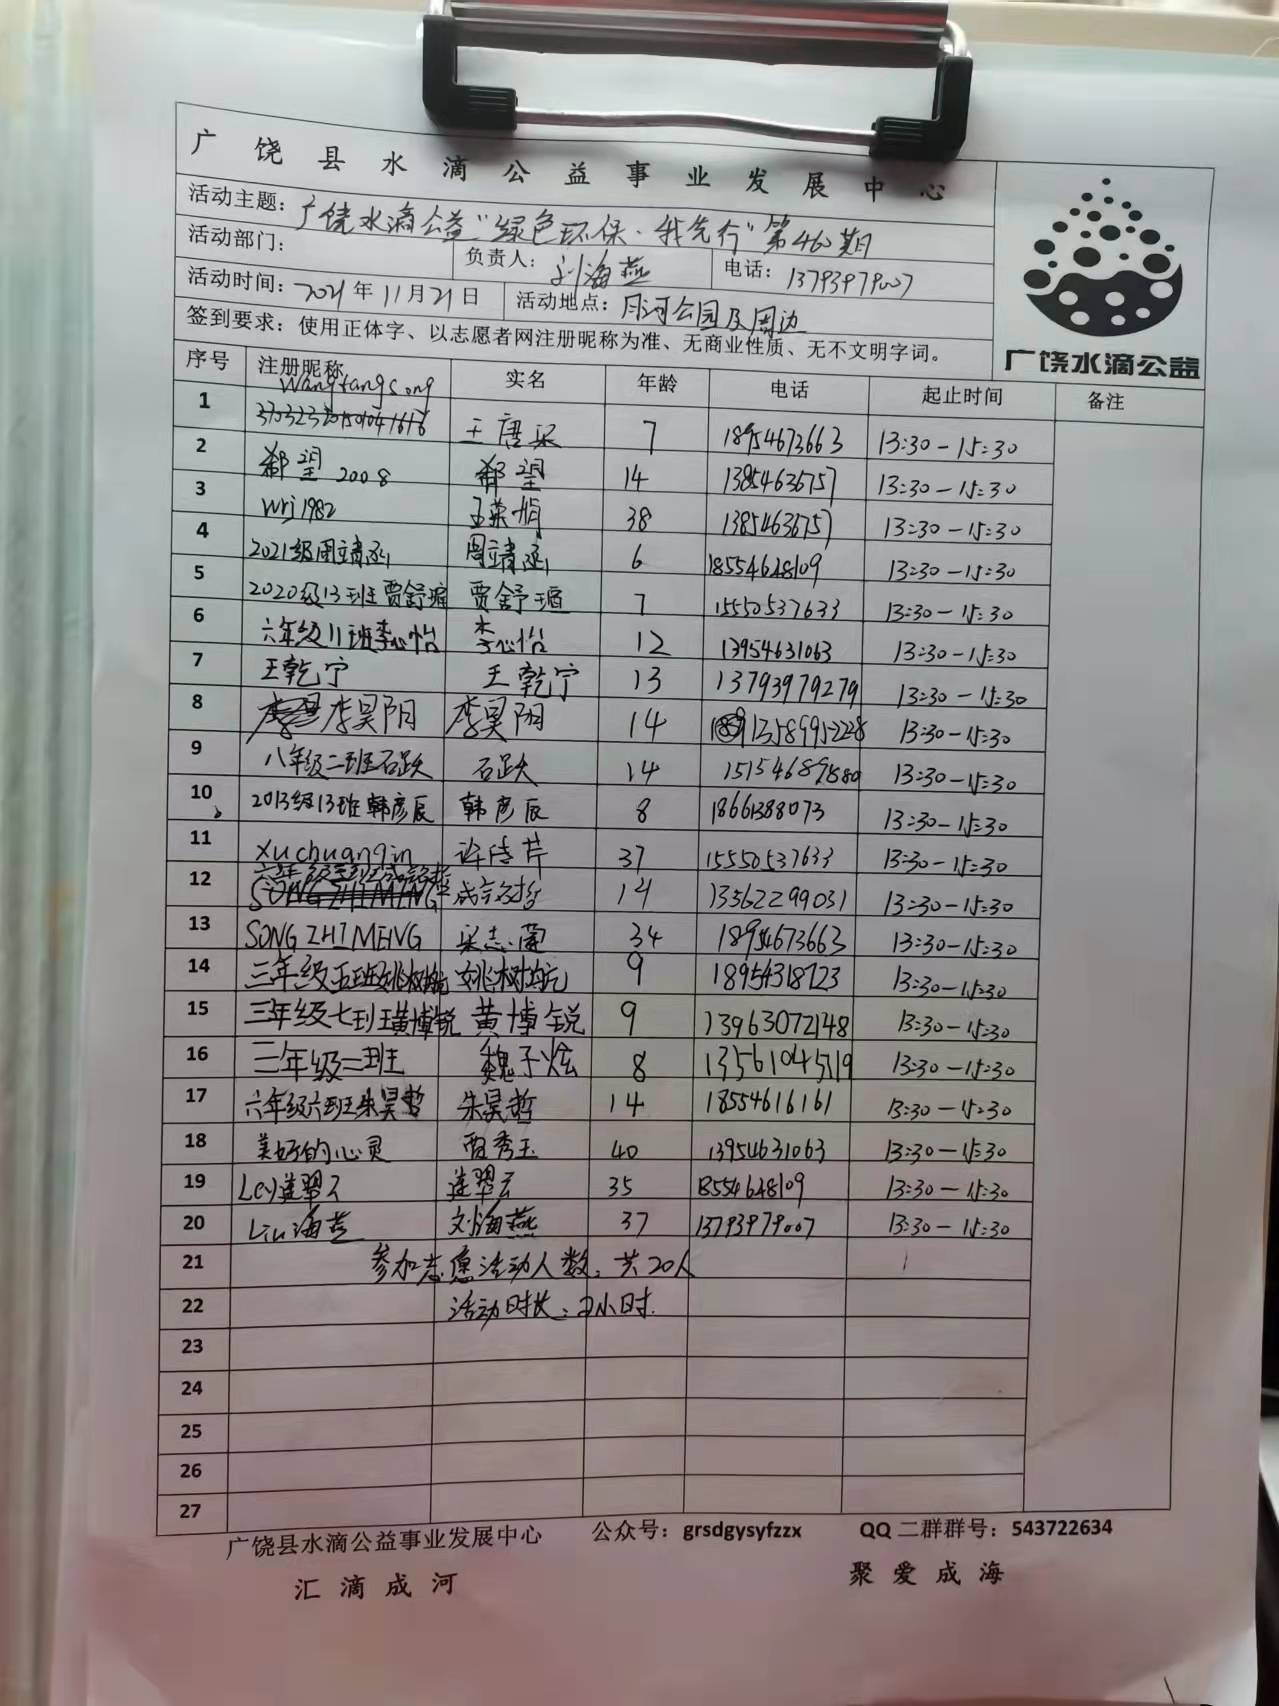 广饶县水滴公益事业发展中心
活动主题：广饶水滴公益"绿色环保·我先行"第460期
活动部门： 负责人：刘海燕 电话：13793979007
活动时间：2021年11月21日 活动地点：月河公园及周边
签到要求：使用正体字、以志愿者网注册昵称为准、无商业性质、无不文明字词。
广饶水滴公益
序号 注册昵称 实名 年龄 电话 起止时间 备注
1 Wangtangsong 王唐宋 7 18954673663 13:30-15:30
2 郗望2008 郗望 14 13854636757 13:30-15:30
3 wrj1982 王荣娟 38 13854636757 13:30-15:30
4 2021级周靖函 周靖函 6 18554628109 13:30-15:30
5 2020级13班贾舒瑄 贾舒瑄 7 15550537633 13:30-15:30
6 六年级11班李心怡 李心怡 12 13954631063 13:30-15:30
7 王乾宁 王乾宁 13 13793979279 13:30-15:30
8 李昊阳 李昊阳 14 13:30-15:30
9 八年级二班石跃 石跃 14 15154689880 13:30-15:30
10 2013级13班韩彦辰 韩彦辰 8 18661388073 13:30-15:30
11 xuchuanqin 许传芹 37 15550537633 13:30-15:30
12 成铭哲 14 13562299031 13:30-15:30
13 SONGZHIMENG 宋志萌 34 18954673663 13:30-15:30
14 三年级五班姚树航 姚树航 9 18954318723 13:30-15:30
15 三年级七班黄博锐 黄博锐 9 13963072148 13:30-15:30
16 三年级二班 魏子炫 8 13561045519 13:30-15:30
17 六年级六班朱昊哲 朱昊哲 14 18554616161 13:30-15:30
18 美好的心灵 贾秀玉 40 13954631063 13:30-15:30
19 Ley连翠云 连翠云 35 18554628109 13:30-15:30
20 Liu海燕 刘海燕 37 13793979007 13:30-15:30
21 参加志愿活动人数：共20人
22 活动时长：2小时.
23
24
25
26
27
广饶县水滴公益事业发展中心 公众号：grsdgysyfzzx QQ二群群号：543722634
汇滴成河 聚爱成海